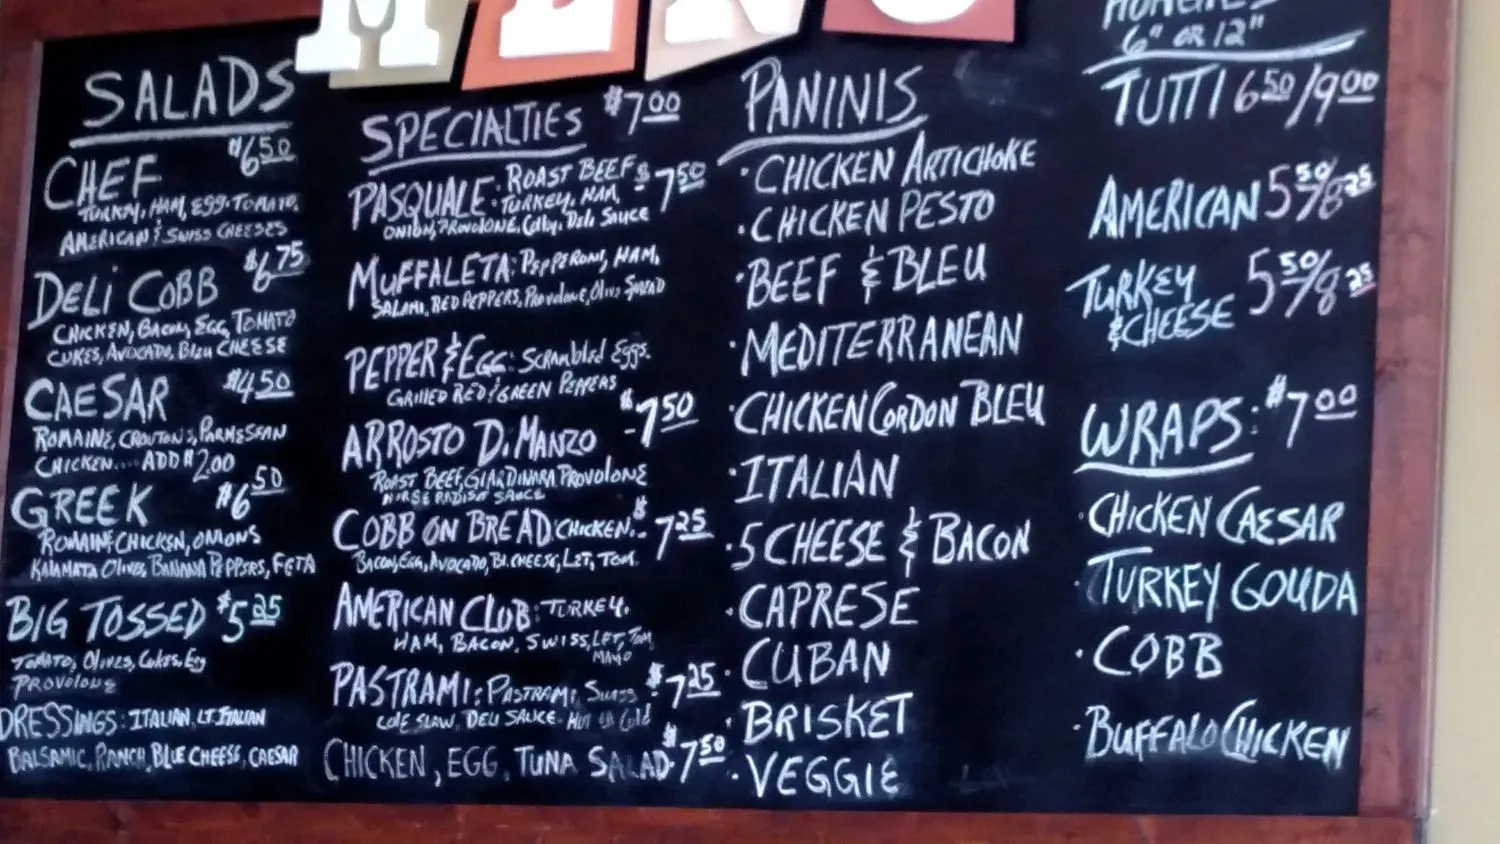 MENU
SALADS
CHEF $6.50
TURKEY, HAM, EGG, TOMATO,
AMERICAN & SWISS CHEESES
DELI COBB $6.75
CHICKEN, BACON, EGG, TOMATO
CUKES, AVOCADO, BLEU CHEESE
CAESAR $4.50
ROMAINE, CROUTONS, PARMESEAN
CHICKEN.... ADD $2.00
GREEK $6.50
ROMAINE CHICKEN, ONIONS
KALAMATA OLIVES, BANANA PEPPERS, FETA
BIG TOSSED $5.25
TOMATO, OLIVES, CUKES, EGG
PROVOLONE
DRESSINGS: ITALIAN, LT. ITALIAN
BALSAMIC, RANCH, BLUE CHEESE, CAESAR
SPECIALTIES $7.00
PASQUALE: ROAST BEEF $7.50
TURKEY, HAM,
ONION, PROVOLONE, Deli Sauce
MUFFALETA: PEPPERONI, HAM,
SALAMI, RED PEPPERS, PROVOLONE, OLIVE SPREAD
PEPPER & EGG: Scrambled Eggs.
GRILLED RED & GREEN PEPPERS
ARROSTO D. MANZO $7.50
ROAST BEEF, GIARDINARA PROVOLONE
HORSE RADISH SAUCE
COBB ON BREAD: CHICKEN.. $7.25
BACON, EGG, AVOCADO, BL. CHEESE, LET, TOM.
AMERICAN CLUB: TURKEY.
HAM, BACON, SWISS, LET, TOM,
MAYO
PASTRAMI: PASTRAMI, SWISS $7.25
COLE SLAW, DELI SAUCE - HOT OR COLD
CHICKEN, EGG, TUNA SALAD $7.50
PANINIS
· CHICKEN ARTICHOKE
· CHICKEN PESTO
· BEEF & BLEU
· MEDITERRANEAN
· CHICKEN CORDON BLEU
· ITALIAN
· 5 CHEESE & BACON
· CAPRESE
· CUBAN
· BRISKET
· VEGGIE
6" OR 12"
TUTTI 6.50/9.00
AMERICAN 5.50/8.25
TURKEY 5.50/8.25
& CHEESE
WRAPS: $7.00
· CHICKEN CAESAR
· TURKEY GOUDA
· COBB
· BUFFALO CHICKEN